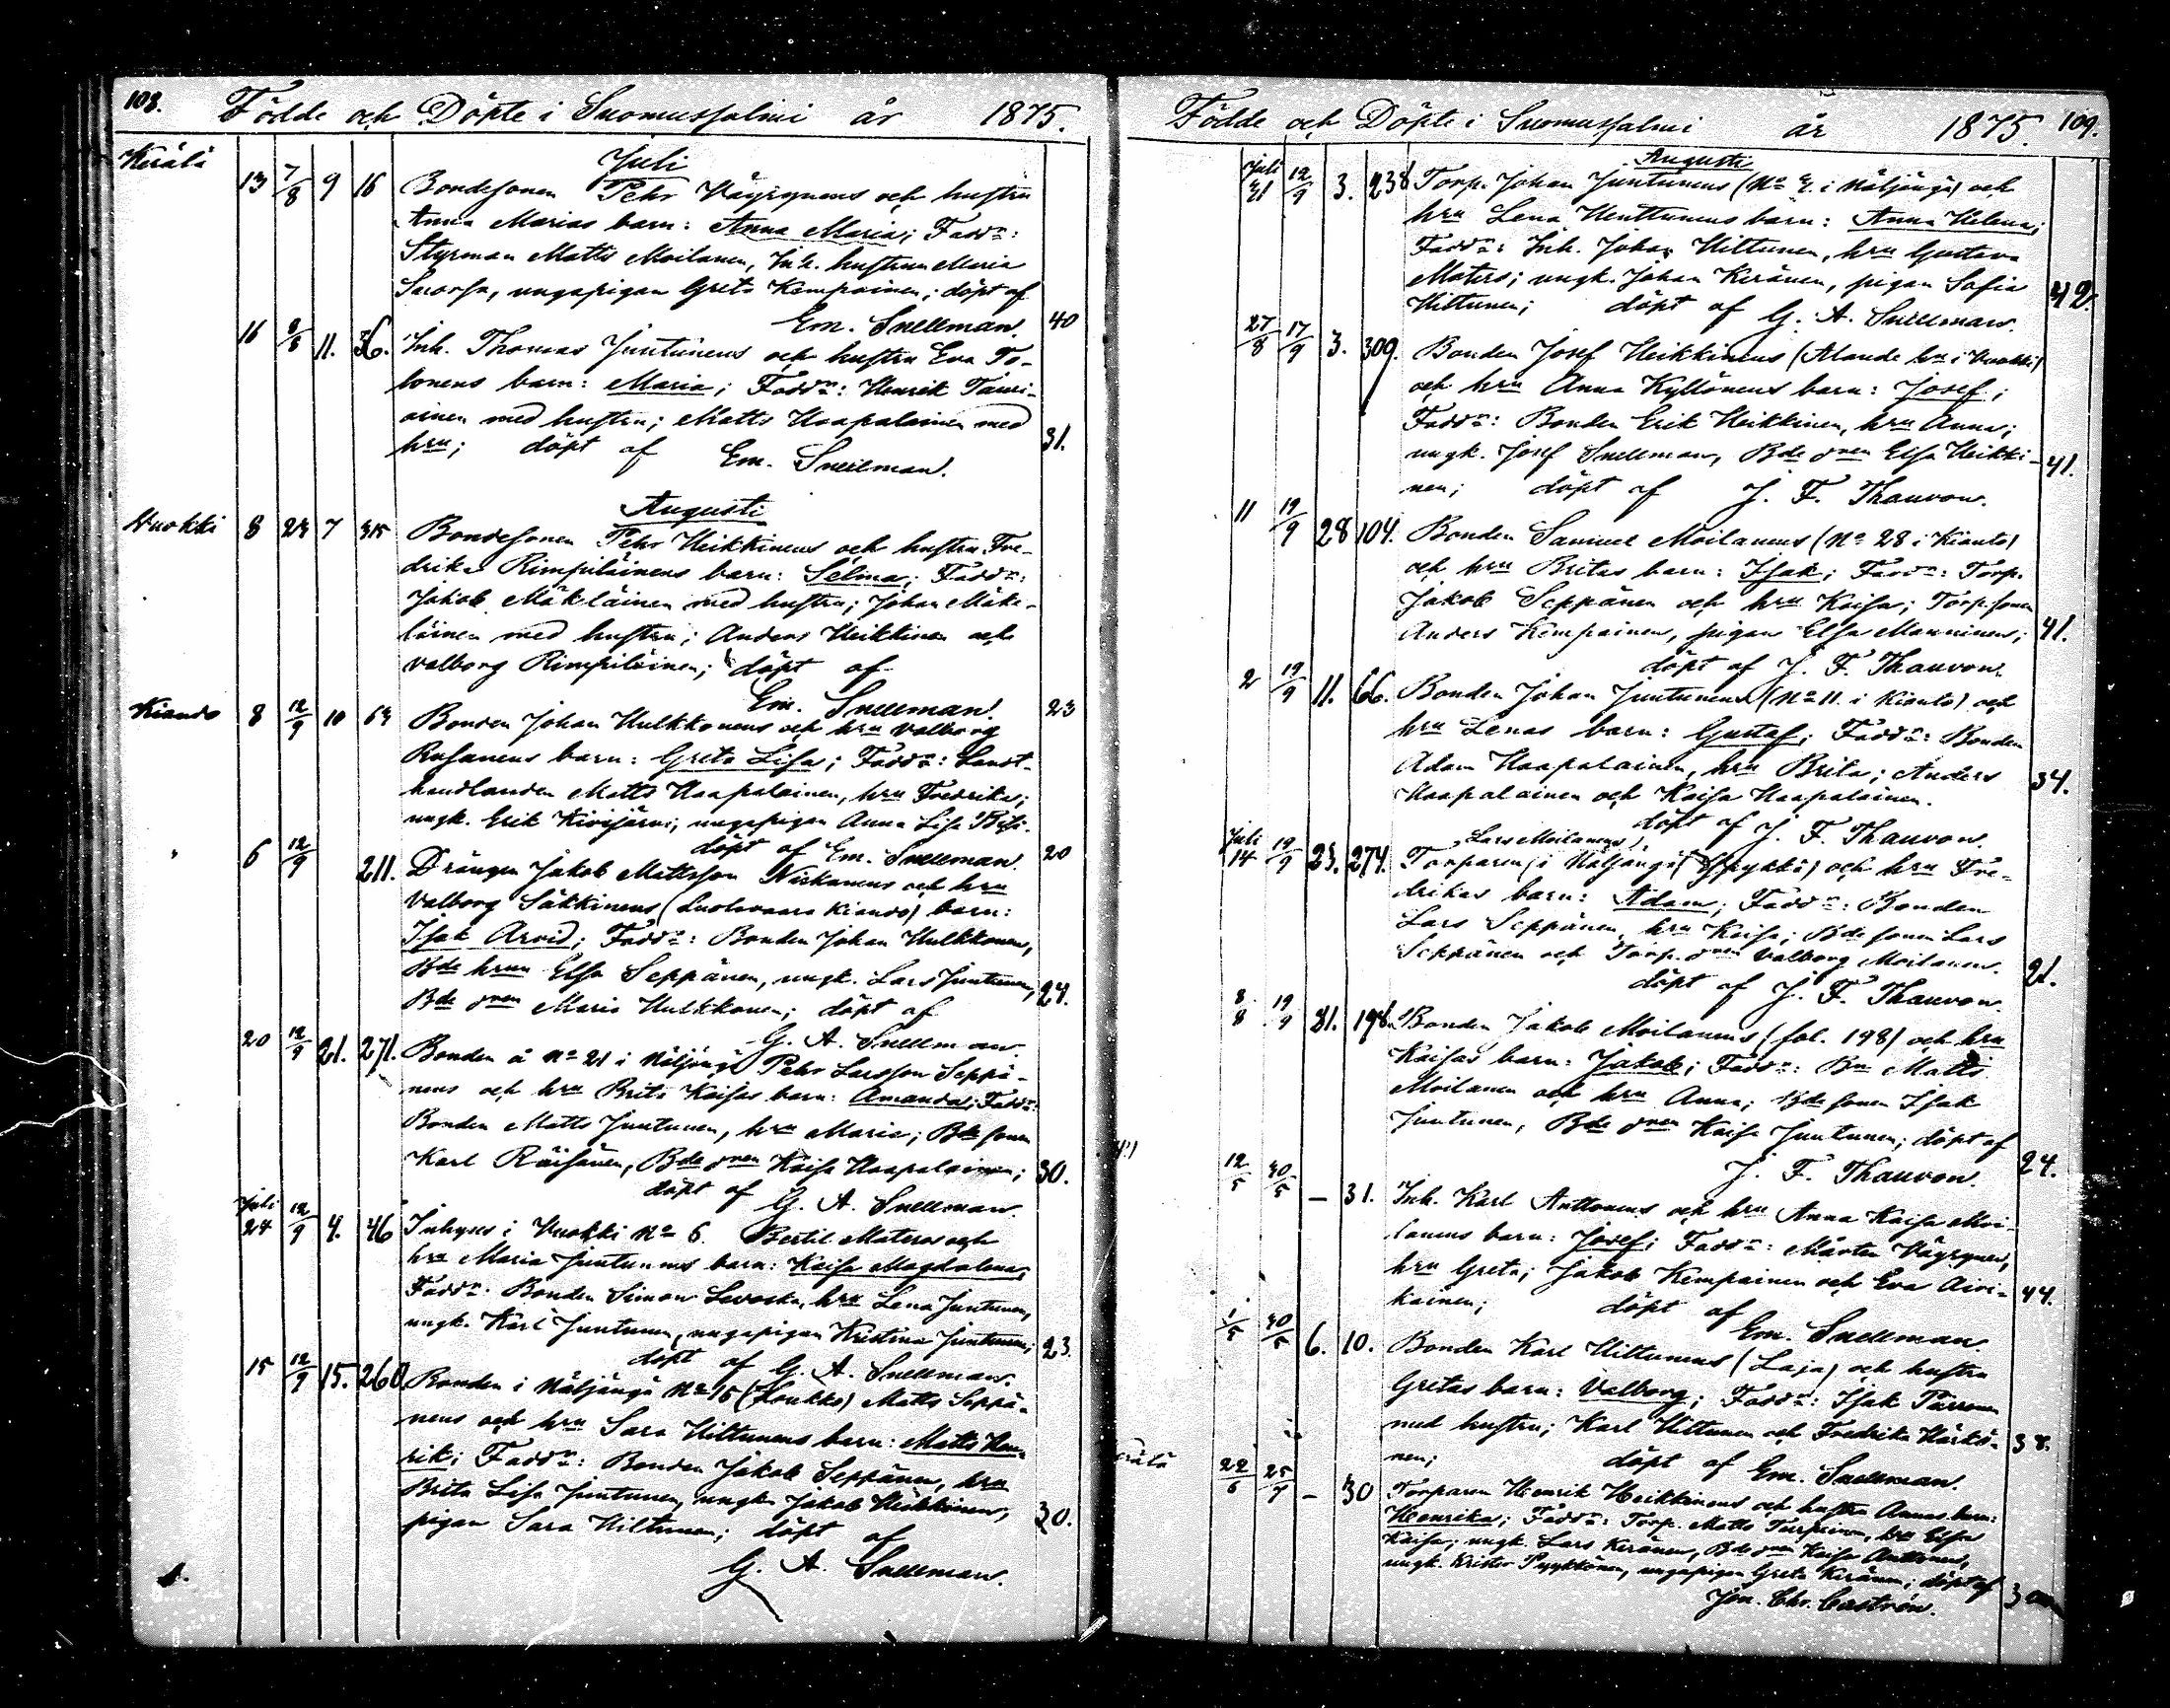 108. Födde och Döpte i Suomussalmi år 1875.
Juli
Kerälä 13 7/8 9 16 Bondesonen Pehr Väyrynens och hustru
Anna Marias barn: Anna Maria; Faddr:
Styrman Matts Moilanen, Inh. hustrun Maria
ungapigan Greta Kempainen; döpt af
Em. Snellman. 40
16 8/8 11. 36. Inh. Thomas Juntunens och hustru Eva To-
lonens barn: Maria; Faddr: Henrik Tauri-
ainen med hustru; Matts Haapalainen med
hru; döpt af Em. Snellman. 31.
Augusti
Vuokki 8 23 7 315 Bondesonen Pehr Heikkinens och hustru Fre-
drika Rimpiläinens barn: Selma; Faddr:
Jakob Mäkläinen med hustru; Johan Mäke-
läinen med hustru; Anders Heikkinen och
Valborg Rimpiläinen; döpt af
Em. Snellman. 23
Kiando 8 12/9 10 64 Bonden Johan Hulkkonens och hru Valborg
barn: Greta Lisa; Faddr: Landt-
handlanden Matts Haapalainen, hru Fredrika;
ungk. Erik Kivijärvi, ungapigan Anna Lisa
döpt af Em. Snellman. 20
6 12/9 211. Drängen Jakob Mattsson Niskanens och hru
Valborg Säkkinens (Luolavaara Kiando) barn:
Isak Arvid; Faddr: Bonden Johan Hulkkonen,
Bde hrun Elsa Seppänen, ungk. Lars Juntunen,
Bde dren Maria Hulkkonen; döpt af 24.
G. A. Snellman.
20 12/9 21. 271. Bonden å No 21 i Näljängä Pehr Larsson Seppä-
nens och hru Brita Kaisas barn: Amanda; Faddr:
Bonden Matts Juntunen, hru Maria; Bde sonen
Karl Räisänen, Bde dren Kaisa Haapalainen; 30.
döpt af G. A. Snellman.
Juli
24 12/9 4. 46 Inhyses i Vuokki No 6. Bertil Materos och
hru Maria Juntunens barn: Kaisa Magdalena;
Faddr: Bonden Simon Levoska, hru Lena Juntunen,
ungk. Karl Juntunen, ungapigan Kristina Juntunen; 23.
döpt af G. A. Snellman.
15 12/9 15. 260 Bonden i Näljängä No 15 (Loukko) Matts Seppä-
nens och hru Sara Hiltunens barn: Matts Hen-
rik; Faddr: Bonden Jakob Seppänen, hru
Brita Lisa Juntunen, ungk. Jakob Heikkinen,
pigan Sara Hiltunen; döpt af 30.
G. A. Snellman.
Födde och Döpte i Suomussalmi år 1875. 109.
Augusti
Juli
21 12/9 3. 238 Torp. Johan Juntunens (No 2. i Näljängä) och
hru Lena Huttunens barn: Anna Helena;
Faddr: Inh. Johan Hiltunen, hru Gustava
Matero; ungk. Johan Keränen, pigan Sofia
Hiltunen; döpt af G. A. Snellman. 42.
27/8 17/9 3. 309. Bonden Josef Heikkinens (Alande hn i Vuokki)
och hru Anna Kyllönens barn: Josef;
Faddr: Bonden Erik Heikkinen, hru Anna;
ungk. Josef Snellman, Bde dren Elsa Heikki-
nen; döpt af J. F. Thauvon. 41.
11 19/9 28 104. Bonden Samuel Moilanens (No 28 i Kianto)
och hru Britas barn: Isak; Faddr: Torp.
Jakob Seppänen och hru Kaisa; Torp. sonen
Anders Kempainen, pigan Elsa Manninen; 41.
döpt af J. F. Thauvon.
2 19/9 11. 66. Bonden Johan Juntunens (No 11. i Kianto) och
hru Lenas barn: Gustaf; Faddr: Bonden
Adam Haapalainen, hru Brita; Anders
Haapalainen och Kaisa Haapalainen. 34.
döpt af J. F. Thauvon.
Lars Moilanens
Juli
14 19/9 23. 274. Torparen (i Näljängä) och hru Fre-
drikas barn: Adam; Faddr: Bonden
Lars Seppänen, hru Kaisa; Bde sonen Lars
Seppänen och Torp. dren Valborg Moilanen. 21.
döpt af J. F. Thauvon.
8/8 19/9 31. 198. Bonden Jakob Moilanens (fol. 198) och hru
Kaisas barn: Jakob; Faddr: Bn Matts
Moilanen och hru Anna; Bde sonen Isak
Juntunen, Bde dren Kaisa Juntunen; döpt af
J. F. Thauvon. 24.
12/5 30/5 – 31. Inh. Karl Anttonens och hru Anna Kaisa Moi-
lanens barn: Josef; Faddr: Mårten Väyrynen,
hru Greta; Jakob Kempainen och Eva Aivi-
kainen; döpt af Em. Snellman. 44.
1/5 30/5 6. 10. Bonden Karl Hiltunens (Laja) och hustru
Gretas barn: Valborg; Faddr: Isak Parronen
med hustru; Karl Hiltunen och Fredrika Härkö-
nen; döpt af Em. Snellman. 38.
22/6 25/7 – 30 Torparen Henrik Heikkinens och hustru Annas barn:
Henrika; Faddr: Torp. Matts Turpeinen, hru Elsa
Kaisa; ungk. Lars Keränen, Bde dren Kaisa Anttonen,
ungk. Krister Pyykkönen, ungapigan Greta Keränen; döpt af
Jon. Chr. Castrén.